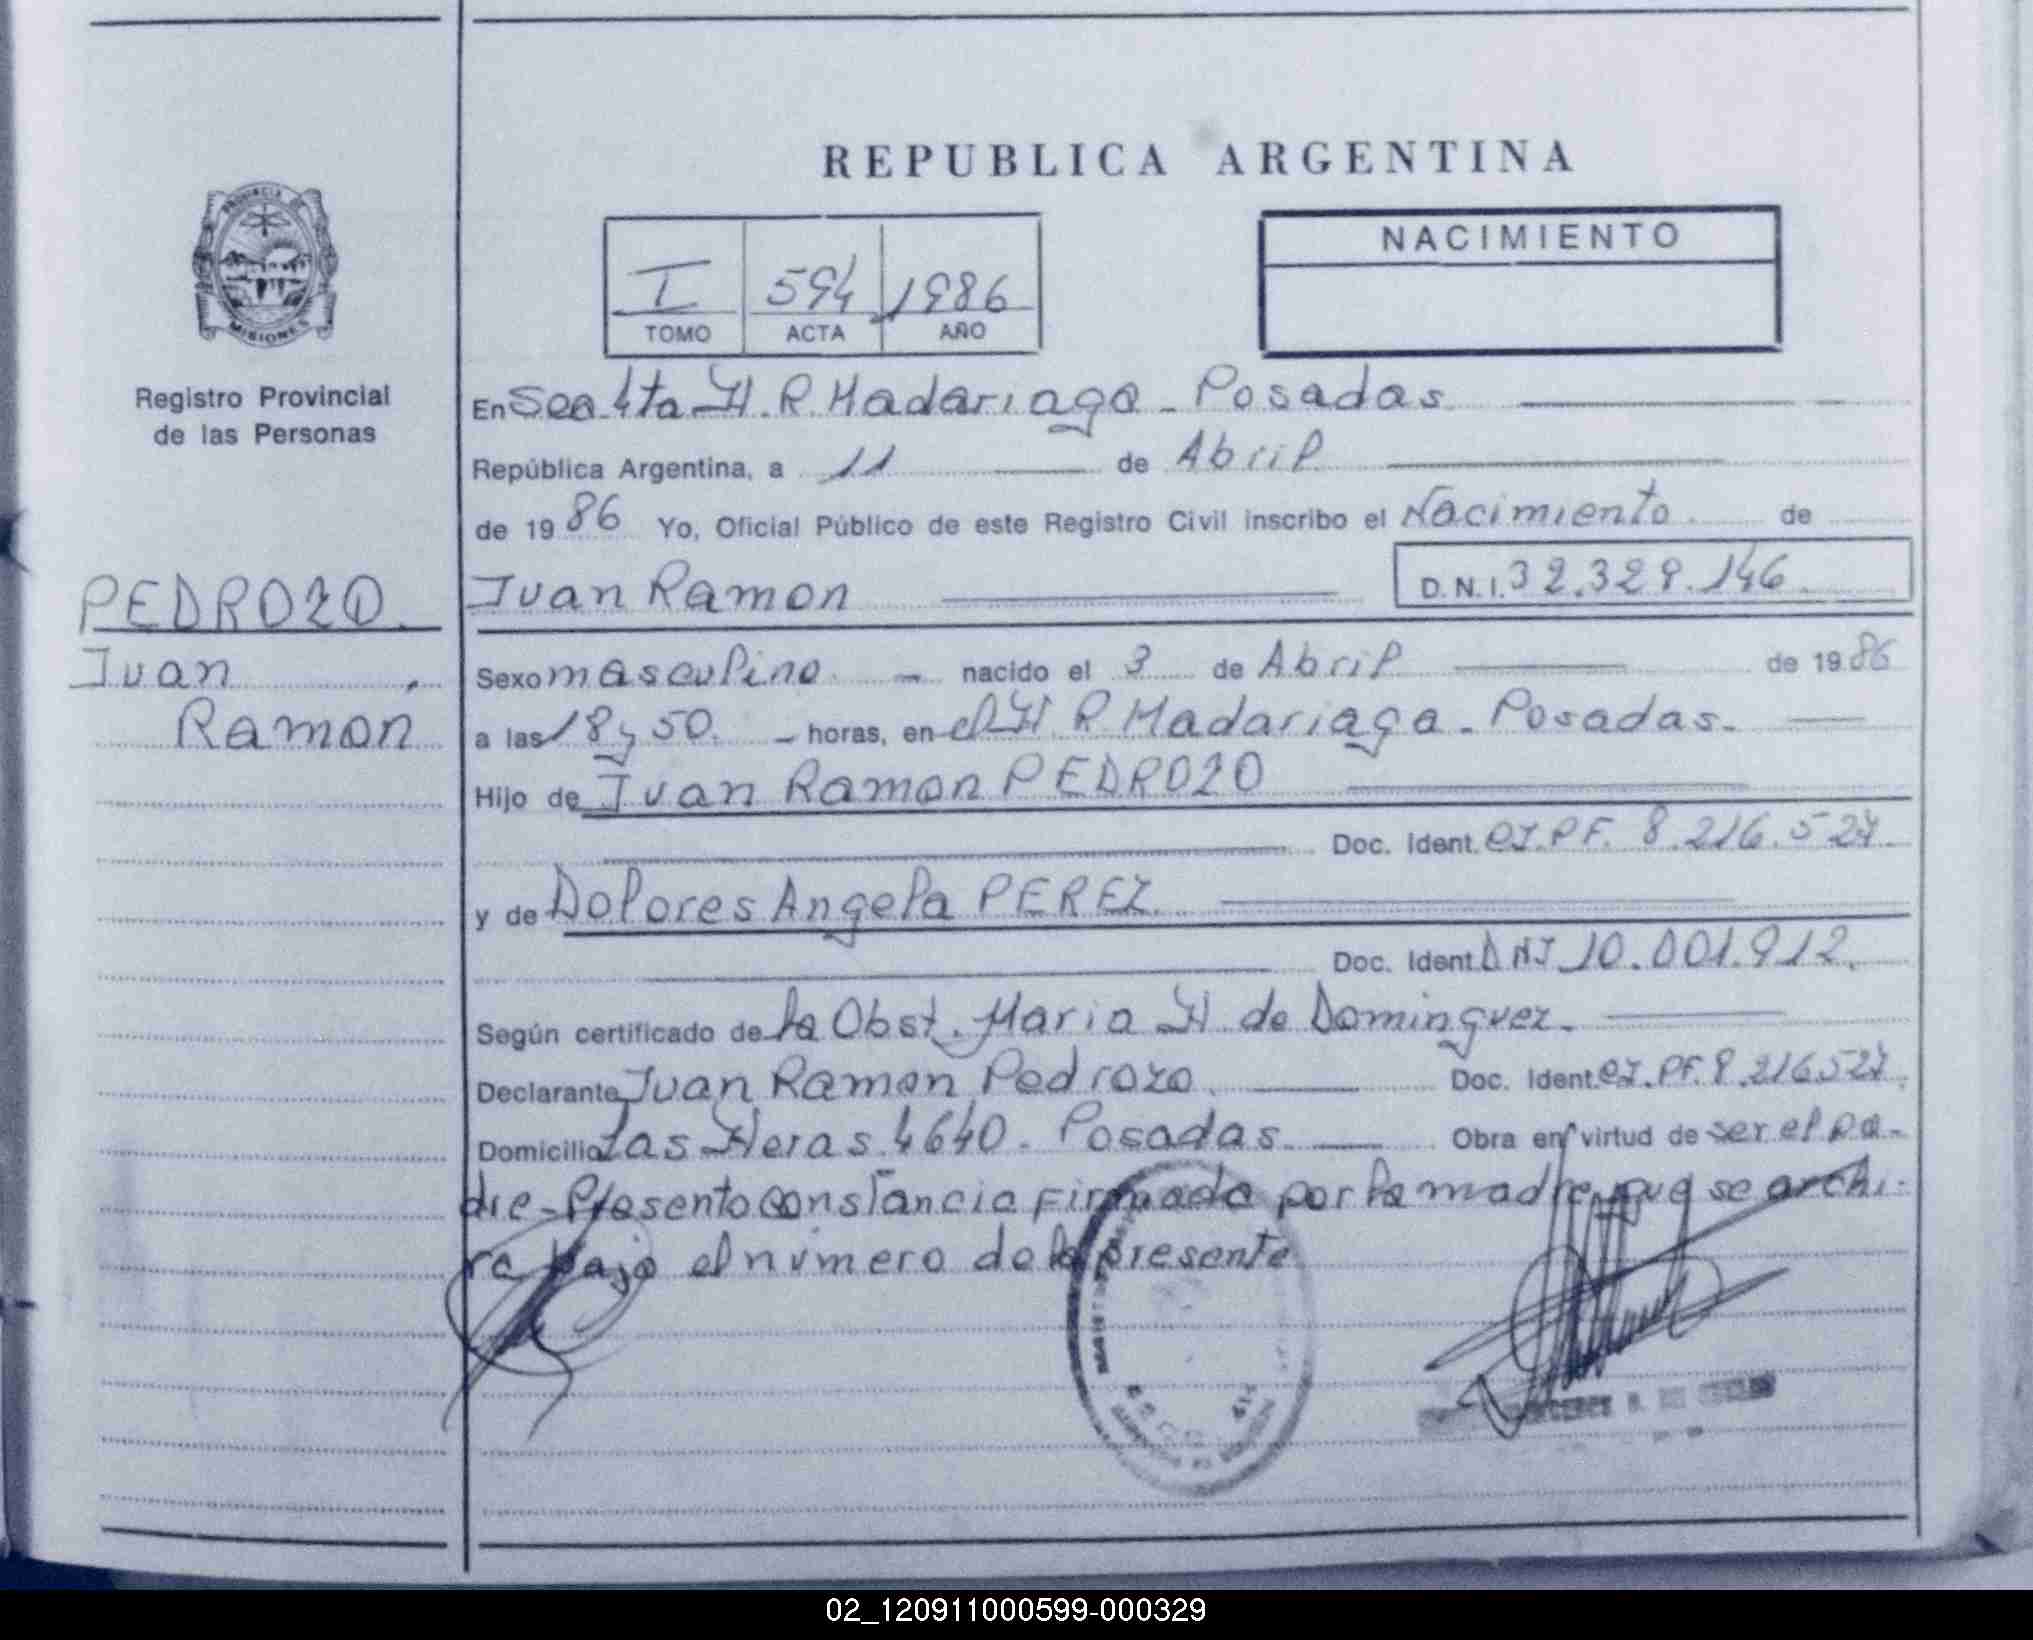 REPUBLICA ARGENTINA
PROVINCIA DE
MISIONES
Registro Provincial
de las Personas
I 594 1986
TOMO ACTA AÑO
NACIMIENTO
En Sec. 4ta H. R. Madariaga - Posadas
República Argentina, a 11 de Abril
de 1986 Yo, Oficial Público de este Registro Civil inscribo el Nacimiento de
Juan Ramon D.N.I. 32.329.146
PEDROZO.
Juan
Ramon
Sexo masculino - nacido el 3 de Abril de 1986
a las 18 y 50. - horas, en el H. R. Madariaga - Posadas.
Hijo de Juan Ramon PEDROZO
Doc. Ident. CI. PF. 8.216.527
y de Dolores Angela PEREZ.
Doc. Ident. DNI 10.001.912.
Según certificado de la Obst. Maria H. de Dominguez.
Declarante Juan Ramon Pedrozo. Doc. Ident. CI. PF. 8.216527.
Domicilio Las Heras 4640. Posadas. Obra en virtud de ser el pa-
dre - Presento constancia firmada por la madre que se archi-
ra bajo el número de la presente
02_120911000599-000329